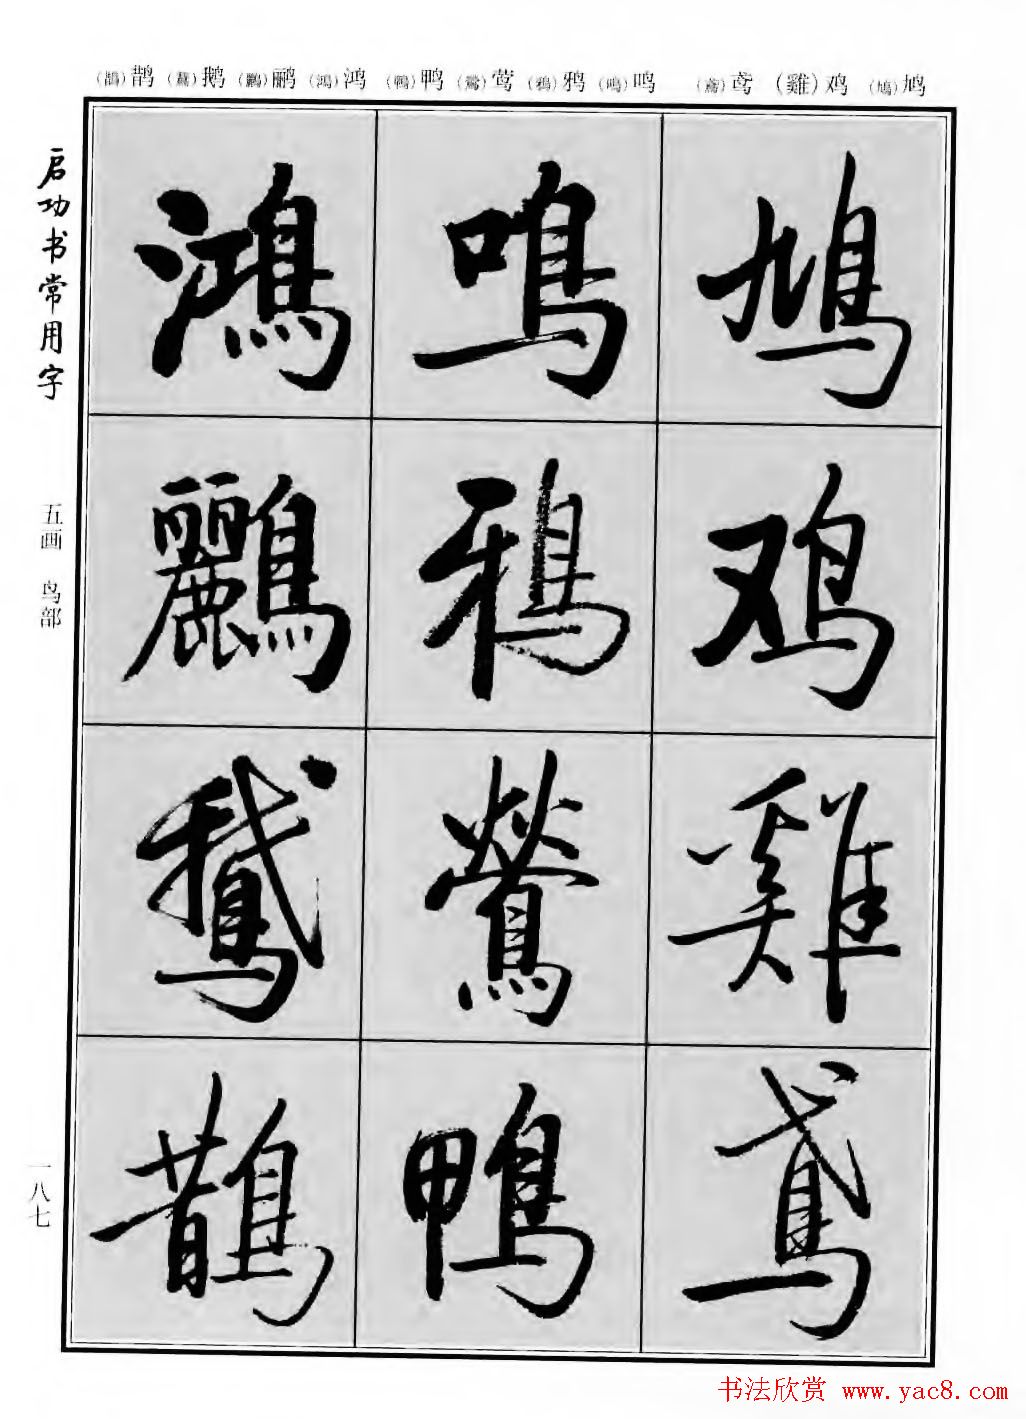 鸠(鳩) 鸡(雞) 鸢(鳶) 鸣(鳴) 鸦(鴉) 莺(鶯) 鸭(鴨) 鸿(鴻) 鹂(鸝) 鹅(鵞) 鹊(鵲)
鳩鸡雞鳶
鳴鴉鶯鴨
鴻鸝鵞鵲
启功书常用字
五画 鸟部
一八七
书法欣赏 www.yac8.com